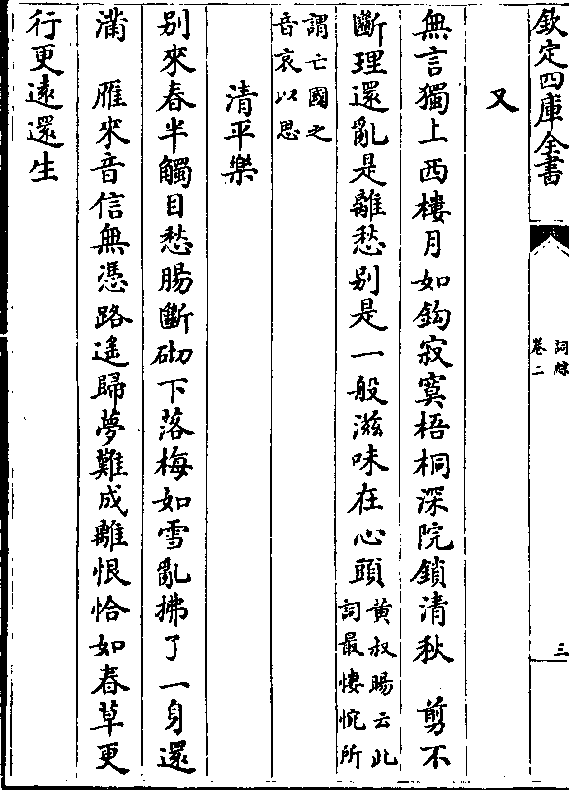 欽定四庫全書
詞綜
卷二
三
又
無言獨上西樓月如鈎寂寞梧桐深院鎖清秋　剪不
斷理還亂是離愁别是一般滋味在心頭
黄叔暘云此
詞最悽惋所
謂亡國之
音哀以思
清平樂
别來春半觸目愁腸斷砌下落梅如雪亂拂了一身還
滿　雁來音信無憑路遙歸夢難成離恨恰如春草更
行更遠還生